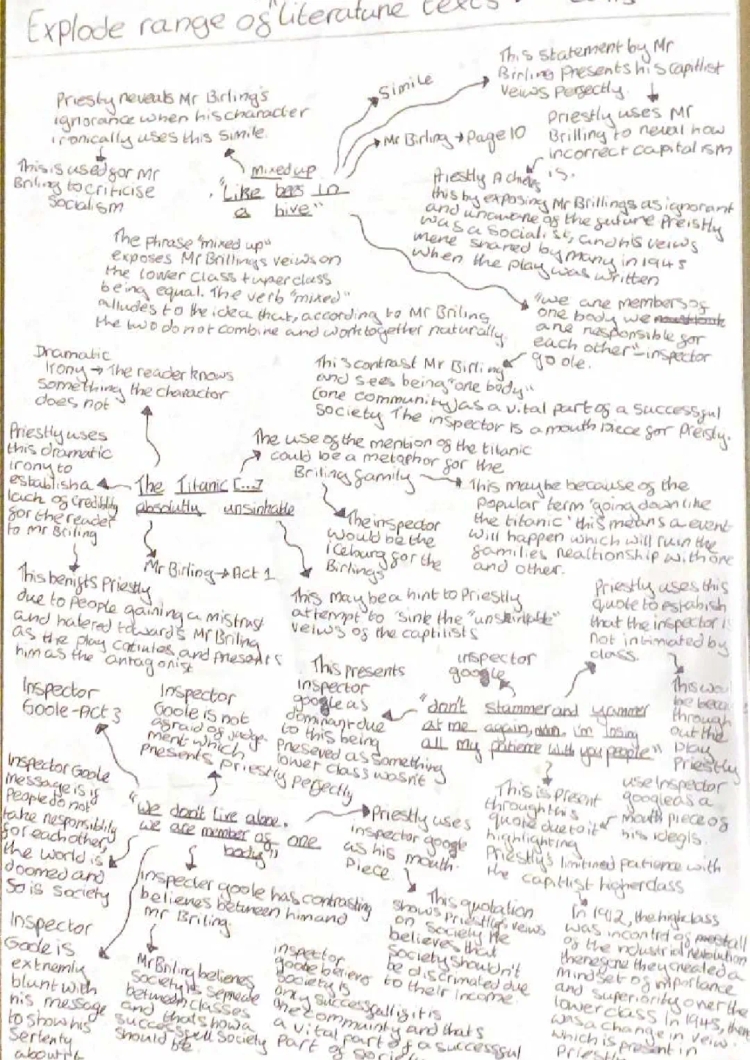 Explode range of "literature texts
Priestly neveals Mr Birling's
ignorance when his character
ironically uses this simile.
This is used for Mr
Briling to criticise
socialism
mixed up
"Like bees in
a hive"
Simile
Mr Birling → Page 10
This statement by Mr
Birling Presents his capitlist
veiws Perfectly.
Priestly uses Mr
Brilling to neveal how
incorrect capitalism
is.
Priestly Achievs
this by exposing Mr Brillings as ignorant
and unaware of the future Preistly
was a socialist, and his veiws
were shared by many in 1945
when the play was written
The phrase "mixed up"
exposes Mr Brillings veiws on
the lower class + uperclass
being equal. The verb "mixed"
alludes to the idea that, according to Mr Briling
the two do not combine and work together naturally.
"we are members of
one body we
are responsible for
each other" - inspector
goole.
This contrast Mr Birling
and sees being "one body"
(one community) as a vital part of a successful
society The inspector is a mouth piece for Preistly.
Dramatic
Irony → The reader knows
something the charactor
does not
Priestly uses
this dramatic
irony to
establish a
lack of credibily
for the reader
to Mr Briling
The Titanic [...]
absolutly unsinkable
The use of the mention of the titanic
could be a metaphor for the
Briling family
This maybe because of the
popular term 'going down like
the titanic' this means a event
will happen which will ruin the
families realtionship with one
and other.
The inspector
would be the
iceburg for the
Birlings
Mr Birling → Act 1
This benifits Priestly
due to people gaining a mistrust
and hatered towards Mr Briling
as the play cotinues and presents
him as the antagonist
This may be a hint to Priestly
attempt to "sink the "unsinkable"
veiws of the captilists
Priestly uses this
quote to estabish
that the inspector is
not intimated by
class.
This wou
be bea
through
out the
play
Priestly
use Inspector
google as a
mouth piece of
his idegis.
inspector
google
"don't stammer and yammer
at me again, man. i'm losing
all my patience with you people"
This presents
inspector
google as
dominant due
to this being
preseved as something
lower class wasn't
This is present
through this
quote due to it
highlighting
Priestly's limitined patience with
the capitlist higherclass
In 1912, the high class
was incontrol of most all
of the industrial revolution
therefore they created a
mindset of importance
and superiority over the
lower class in 1945, then
was a change in veiw.
which is present in
Priestly
Inspector
Goole - Act 3
Inspector
Goole is not
afraid of judge
ment which
presents priestly perfectly
"we don't live alone.
we are member of one
body"
Inspector Goole
message is if
People do not
take responsibility
for each other
the world is
doomed and
so is society
Priestly uses
inspector google
as his mouth
piece.
This quotation
shows Priestley's veiws
on society He
believes that
society shouldn't
be discrimated due
to their income.
inspecter goole has contrasting
believes between him and
mr Briling
Mr Briling believes
society is seperate
between classes
and that's how a
successfull society
should be.
inspector
goole believes
society is
only successfull if it is
one commuinty and thats
a vital part of a successful
part of
Inspector
Goole is
extremly
blunt with
his message
to show his
serienty
about